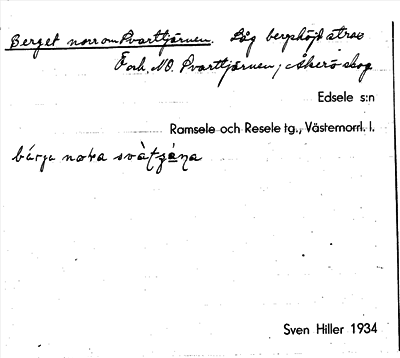 Berget norr om Svarttjärnen. Låg bergshöjd strax
NO. Svarttjärnen, Åkerö skog
Edsele s:n
Ramsele och Resele tg., Västernorrl. l.
Sven Hiller 1934